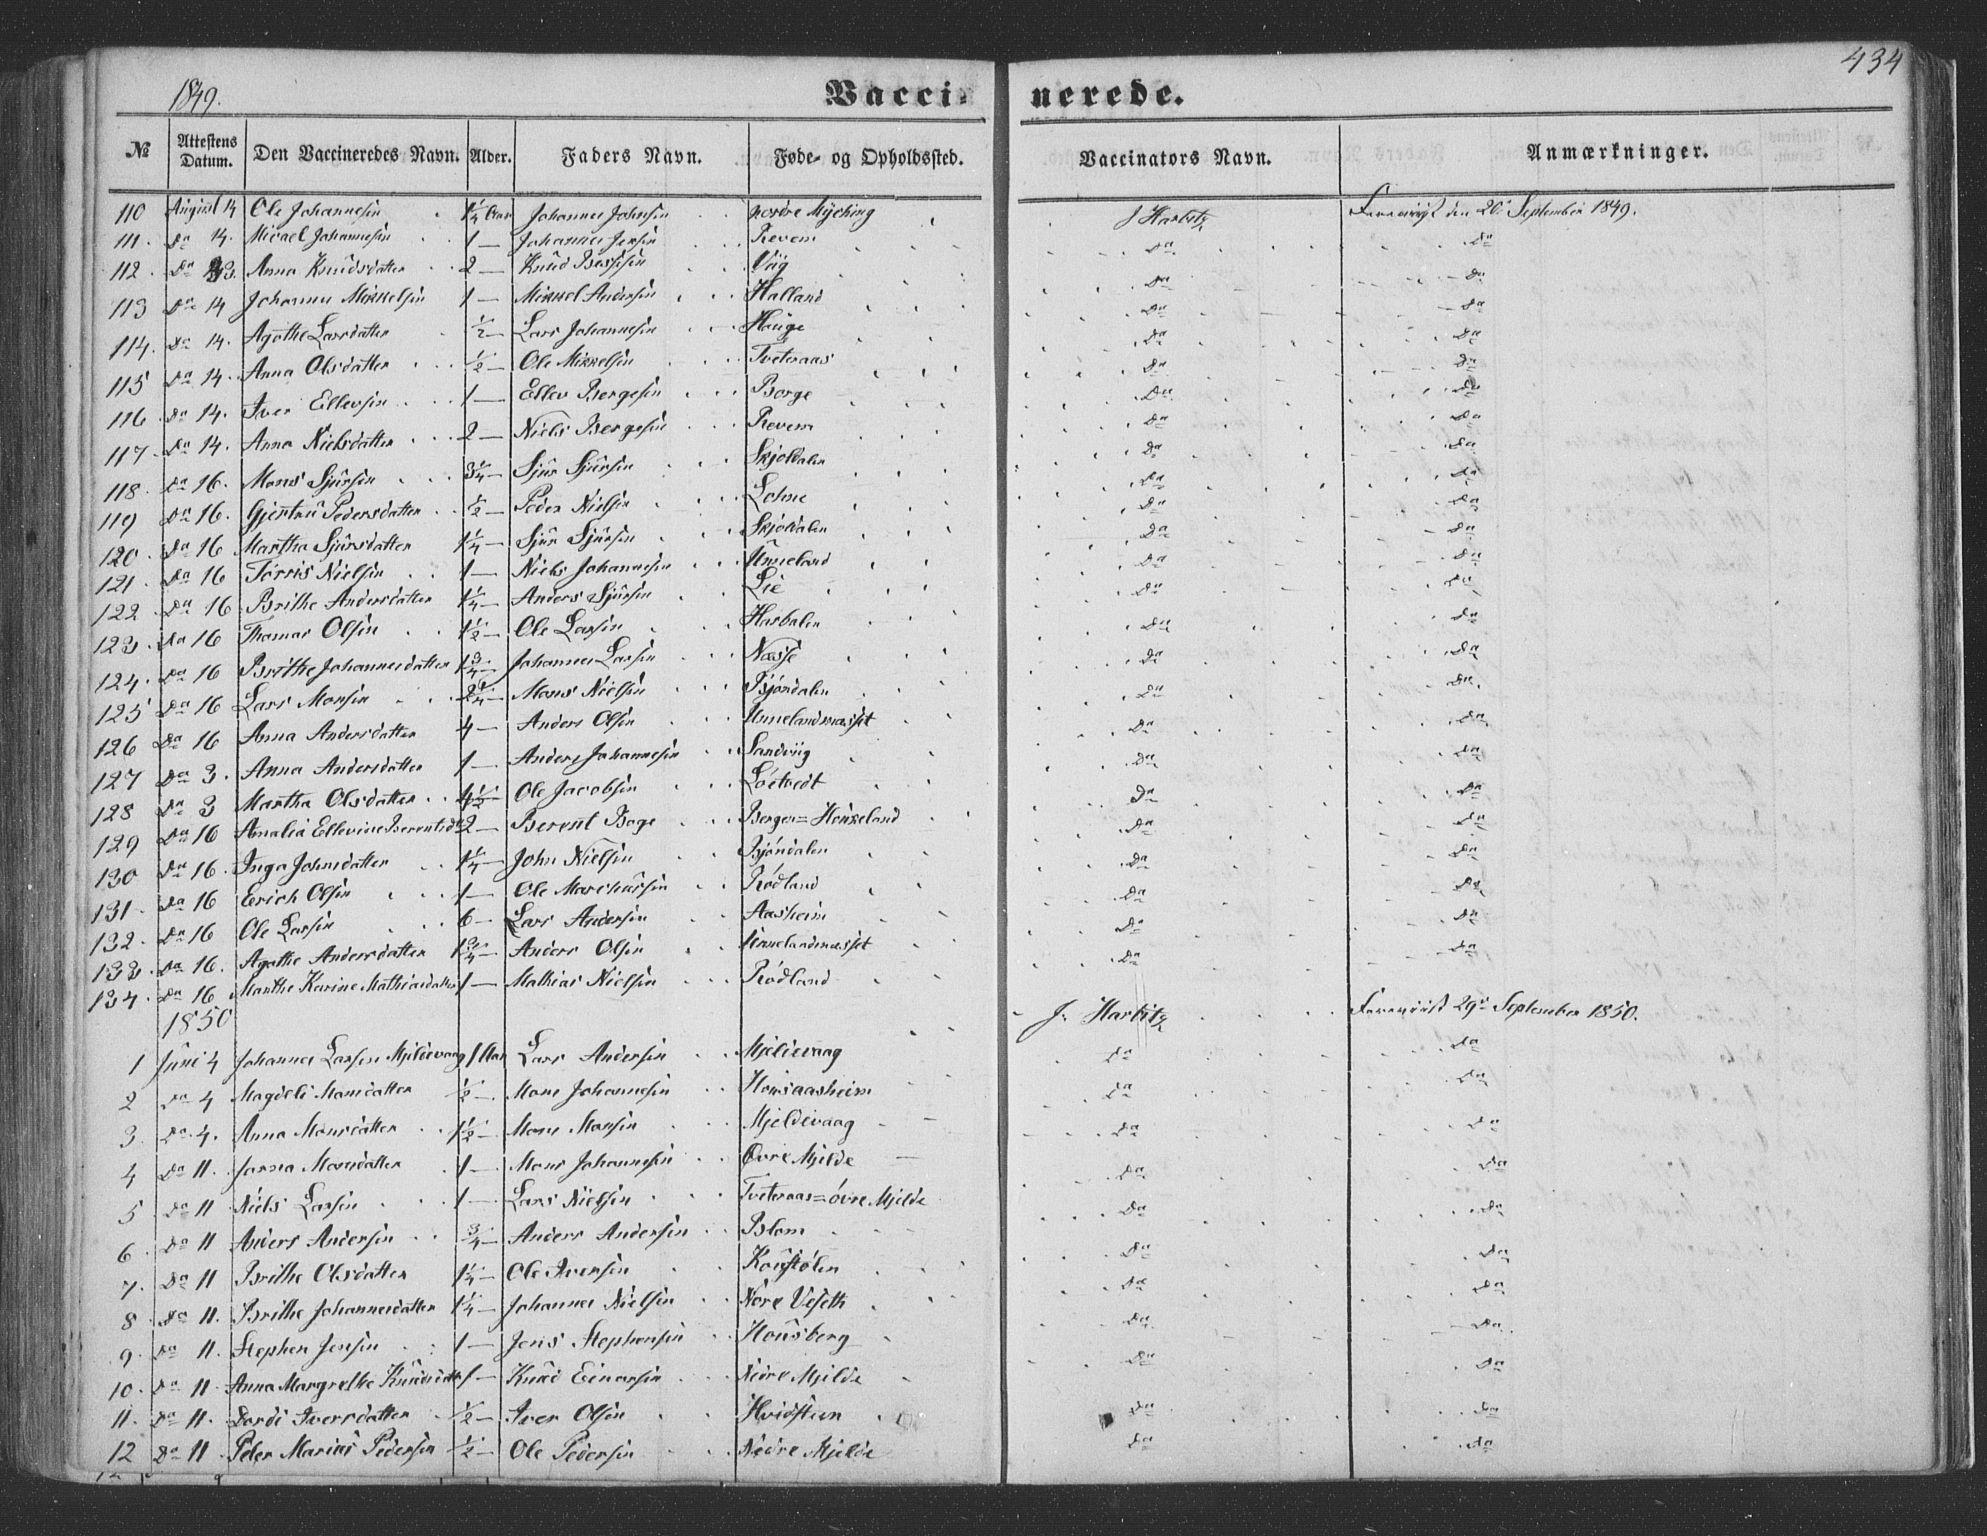 434
1849.
Vaccinerede.
№ Attestens Datum. Den Vaccineredes Navn. Alder. Faders Navn. Føde- og Opholdssted. Vaccinators Navn. Anmærkninger.
110 August 14 Ole Johannesen 1¼ Aar Johannes Johnsen nordre J Harbitz den 20de September 1849.
111. Do 14. Micael Johannesen 1 — Johannes Revem Do Do
112 Do 23. Anna Knudsdatter 2 — Knud Viig Do Do
113 Do 14 Johannes Mikkelsen 1 — Mikkel Andersen Halland Do Do
114. Do 14. Agathe Larsdatter ½ — Lars Johannesen Houge Do Do
115 Do 14. Anna Olsdatter ½ — Ole Mikkelsen Tveteraas Do Do
116 Do 14. Iver Ellevsen 1 — Ellev Bergesen Borge Do Do
117 Do 14. Anna Nielsdatter 2 — Niels Bergesen Revem Do Do
118 Do 16. Mons Sjursen 3/4 — Sjur Sjursen Skjoldalen Do Do
119 Do 16. Gjertru Pedersdatter ½ — Peder Nielsen Lohne Do Do
120 Do 16 Martha Sjursdatter 1¼ — Sjur Sjursen Skjoldalen Do Do
121 Do 16 Torris Nielsen 1 — Niels Johannesen Unneland Do Do
122 Do 16 Brithe Andersdatter 1¼ — Anders Sjursen Lie Do Do
123 Do 16 Thomas Olsen 1½ — Ole Larsen Hasdalen Do Do
124 Do 16 Brithe Johannesdatter 1¾ — Johannes Larsen Næsse Do Do
125 Do 16 Lars Monsen 2¼ — Mons Nielsen Bjøndalen Do Do
126 Do 16 Anna Andersdatter 4 — Anders Olsen Unnelandnæsset Do Do
127 Do 3. Anna Andersdatter 1 — Anders Johannesen Sandviig Do Do
128 Do 3 Martha Olsdatter 4½ — Ole Jacobsen Løetvedt Do Do
129 Do 16 Amalia Ellevine Berentsdtr 2 — Berent Boge Berger=Houkeland Do Do
130 Do 16. Inga Johnsdatter 1¼ — John Nielsen Bjøndalen Do Do
131 Do 16 Erich Olsen 1 — Ole Marcussen Rødland Do Do
132. Do 16 Ole Larsen 6 — Lars Andersen Aasheim Do Do
133 Do 16. Agathe Andersdatter 1¾ — Anders Olsen Unnelandnæsset Do Do
134. Do 16 Marthe Karine Mathiasdatter 1 — Mathias Nielsen Rødland Do Do
1850
1 Juni 4 Johannes Larsen Mjeldevaag 1 Aar Lars Andersen Mjeldevaag J. Harbitz 29de September 1850.
2 Do 4 Magdeli Monsdatter ½ — Mons Johannesen Do Do
3 Do 4. Anna Monsdatter 1½ — Mons Monsen Mjeldevaag Do Do
4 Do 11. Monsdatter 1 — Mons Johannesen Øvre Mjelde Do Do
5 Do 11 Niels Larsen 1 — Lars Nielsen Tveteraas=øvre Mjelde Do Do
6 Do 11 Anders Andersen ¾ — Anders Andersen Blom Do Do
7 Do 11 Brithe Olsdatter 1¼ — Ole Iversen Do Do
8 Do 11. Brithe Johannesdatter 1¼ — Johannes Nielsen Nøre Veseth Do Do
9 Do 11. Stephen Jensen 1 — Jens Stephensen Housberg Do Do
10 Do 11. Anna Margrethe Knudsdatter 1 — Knud Einarsen Nedre Mjelde Do Do
11. Do 11. Dordi Iversdatter ½ — Iver Olsen Hvidsteen Do Do
12 Do 11 Peder Marius Pedersen ½ — Ole Pedersen Nedre Mjelde Do Do